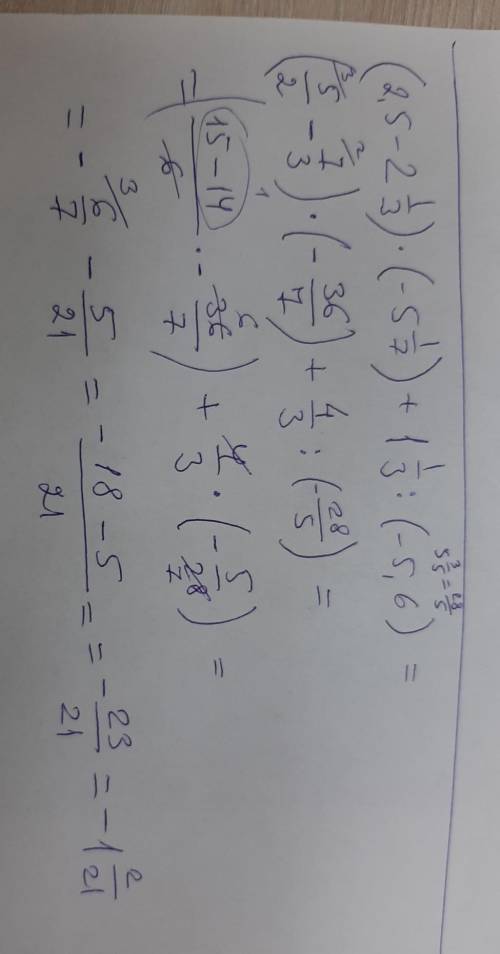 (2,5 - 2 1/3) · (-5 1/7) + 1 1/3 : (-5,6) =
5 3/5 = 28/5
(5/2 - 7/3) · (-36/7) + 4/3 : (-28/5) =
= (15 - 14 / 6 · - 36/7) + 4/3 · (-5/28) =
= - 6/7 - 5/21 = -18 - 5 / 21 = = - 23/21 = - 1 2/21